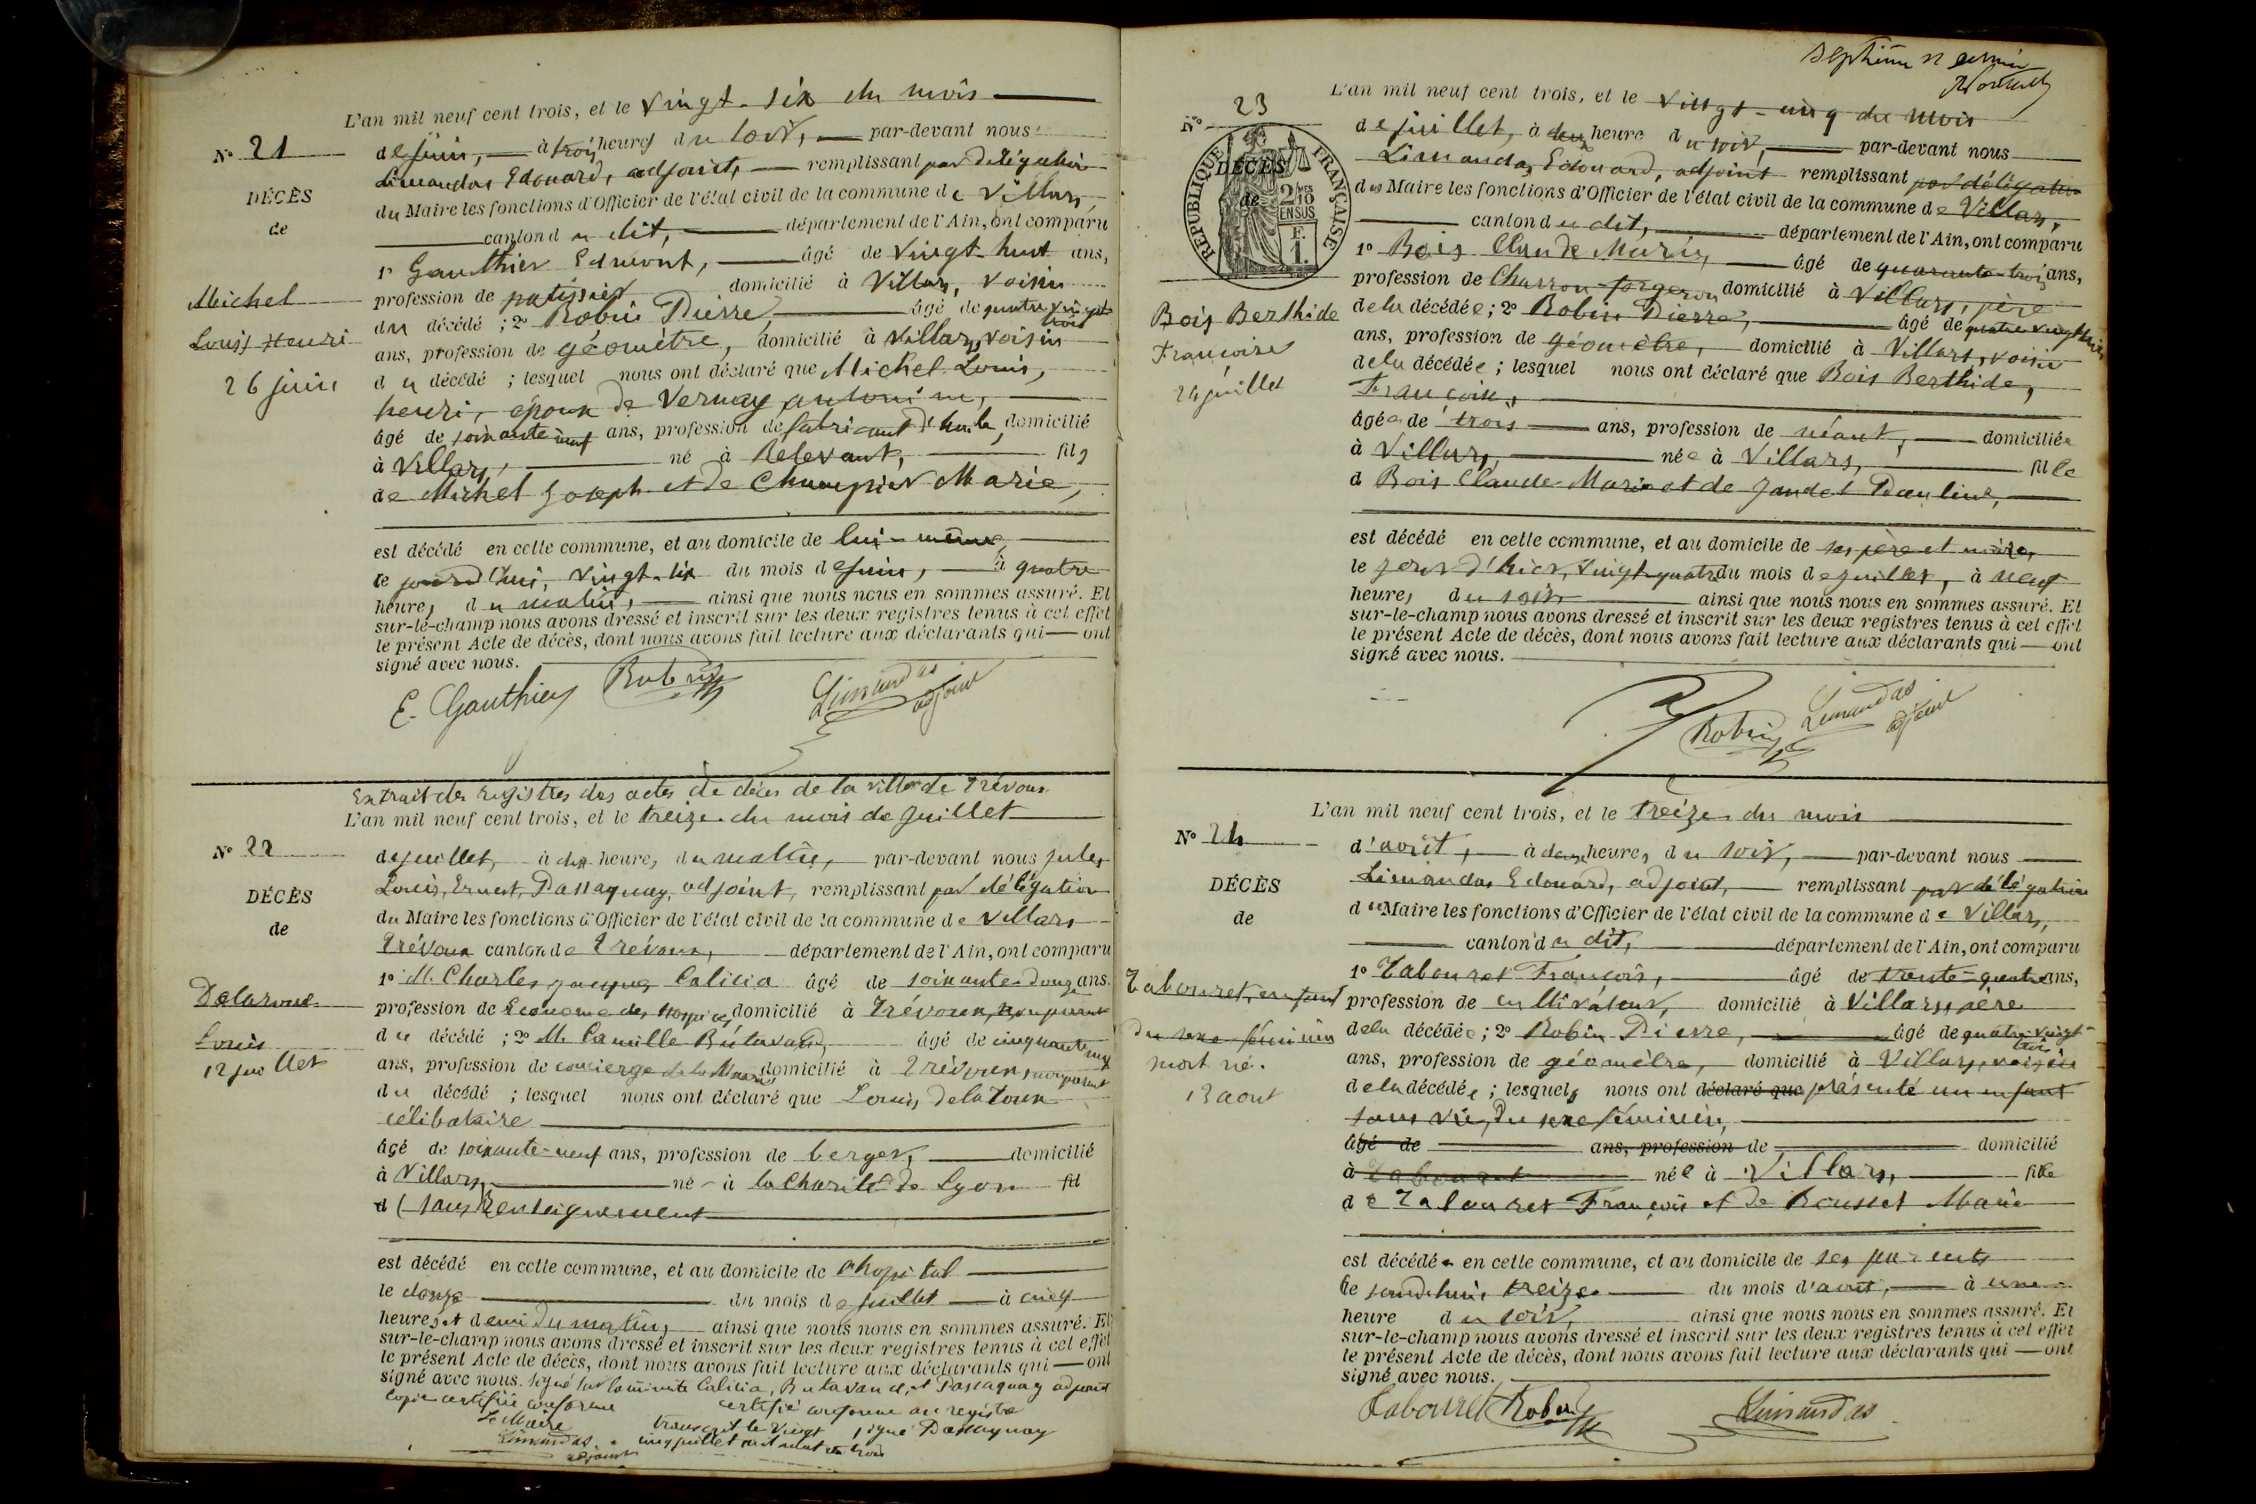 L'an mil neuf cent trois, et le vingt-six du mois
N° 21
de juin, à trois heures du soir, par-devant nous
Limandas Edouard, adjoint, remplissant par délégation
DÉCÈS
du Maire les fonctions d'Officier de l'état civil de la commune de Villars
de
canton du dit, département de l'Ain, ont comparu
1° Gauthier Edmont, âgé de vingt-huit ans,
Michel
profession de patissier domicilié à Villars, voisin
du décédé ; 2° Robin Pierre, âgé de quatre vingt
trois
Louis Henri
ans, profession de géomètre, domicilié à Villars, voisin
26 juin
du décédé ; lesquel nous ont déclaré que Michel Louis,
henri, époux de Vernay antonine,
âgé de soixante neuf ans, profession de fabricant d'huile, domicilié
à Villars, né à Relevant, fils
de Michel Joseph et de Champier Marie,
est décédé en cette commune, et au domicile de lui-même,
le jourd'hui vingt-six du mois de juin, à quatre
heures du matin, ainsi que nous nous en sommes assuré. Et
sur-le-champ nous avons dressé et inscrit sur les deux registres tenus à cet effet
le présent Acte de décès, dont nous avons fait lecture aux déclarants qui ont
signé avec nous.
E. Gauthier Robin Limandas
adjoint
Extrait des registres des actes de décès de la ville de Trévoux
L'an mil neuf cent trois, et le treize du mois de juillet
N° 22
de juillet, à dix heures du matin, par-devant nous jules
Louis, Ernest, Passaquay, adjoint, remplissant par délégation
DÉCÈS
du Maire les fonctions d'Officier de l'état civil de la commune de Villars
de
Trévoux canton de Trévoux, département de l'Ain, ont comparu
1° M. Charles jacques Calicia âgé de soixante douze ans.
Delaroue
profession de Econome des hospices domicilié à Trévoux, non parent
Louis
du décédé ; 2° M. Camille Butavand, âgé de cinquante neuf
12 juillet
ans, profession de concierge de la Mairie domicilié à Trévoux, non parent
du décédé ; lesquel nous ont déclaré que Louis Delatour
célibataire
âgé de soixante-neuf ans, profession de berger, domicilié
à Villars, né à la Charité de Lyon fil
d (sans Renseignement
est décédé en cette commune, et au domicile de l'hopital
le douze du mois de juillet à cinq
heures et demi du matin, ainsi que nous nous en sommes assuré. Et
sur-le-champ nous avons dressé et inscrit sur les deux registres tenus à cet effet
le présent Acte de décès, dont nous avons fait lecture aux déclarants qui ont
signé avec nous. signé sur la minute Calicia, Butavand, et Passaquay adjoint
copie certifiée conforme certifié conforme au registre
Le Maire transcrit le vingt signé Passaquay
Limandas cinq juillet mil neuf cent trois
adjoint
septième et dernier
L'an mil neuf cent trois, et le vingt-cinq du mois
N° 23
de juillet, à heure du soir, par-devant nous
Limandas, Edouard, adjoint remplissant par délégation
DÉCÈS
de
RÉPUBLIQUE FRANÇAISE
2/10 EN SUS
F. 1.
du Maire les fonctions d'Officier de l'état civil de la commune de Villars,
canton du dit, département de l'Ain, ont comparu
1° Bois Claude Marie, âgé de quarante-trois ans,
profession de Charron-forgeron domicilié à Villars, père
Bois Berthide
de la décédée ; 2° Robin Pierre, âgé de quatre vingt trois
Francoise
ans, profession de géomètre, domicilié à Villars, voisin
24 juillet
de la décédée ; lesquel nous ont déclaré que Bois Berthide,
Francoise,
âgée de trois ans, profession de néant, domiciliée
à Villars, née à Villars, fille
d Bois Claude Marie et de Jandet Pauline,
est décédé en cette commune, et au domicile de ses père et mère,
le jour d'hier, vingt-quatre du mois de juillet, à neuf
heures du soir ainsi que nous nous en sommes assuré. Et
sur-le-champ nous avons dressé et inscrit sur les deux registres tenus à cet effet
le présent Acte de décès, dont nous avons fait lecture aux déclarants qui ont
signé avec nous.
Robin Limandas
adjoint
L'an mil neuf cent trois, et le treize du mois
N° 24
d'août, à deux heures du soir, par-devant nous
Limandas Edouard, adjoint, remplissant par délégation
DÉCÈS
du Maire les fonctions d'Officier de l'état civil de la commune de Villars,
de
canton du dit, département de l'Ain, ont comparu
1° Tabouret François, âgé de trente-quatre ans,
Tabouret, enfant
profession de cultivateur, domicilié à Villars, père
du sexe féminin
de la décédée ; 2° Robin Pierre, âgé de quatre-vingt-
trois
mort né.
ans, profession de géomètre, domicilié à Villars, voisin
13 aout
de la décédée ; lesquels nous ont déclaré que présenté un enfant
sans vie, du sexe féminin,
âgé de ans, profession de domicilié
à Tabouret née à Villars, fille
de Tabouret François et de Rousset Marie
est décédé en cette commune, et au domicile de ses parents
le jourd'hui treize du mois d'aout, à une
heure du soir, ainsi que nous nous en sommes assuré. Et
sur-le-champ nous avons dressé et inscrit sur les deux registres tenus à cet effet
le présent Acte de décès, dont nous avons fait lecture aux déclarants qui ont
signé avec nous.
Tabouret Robin Limandas